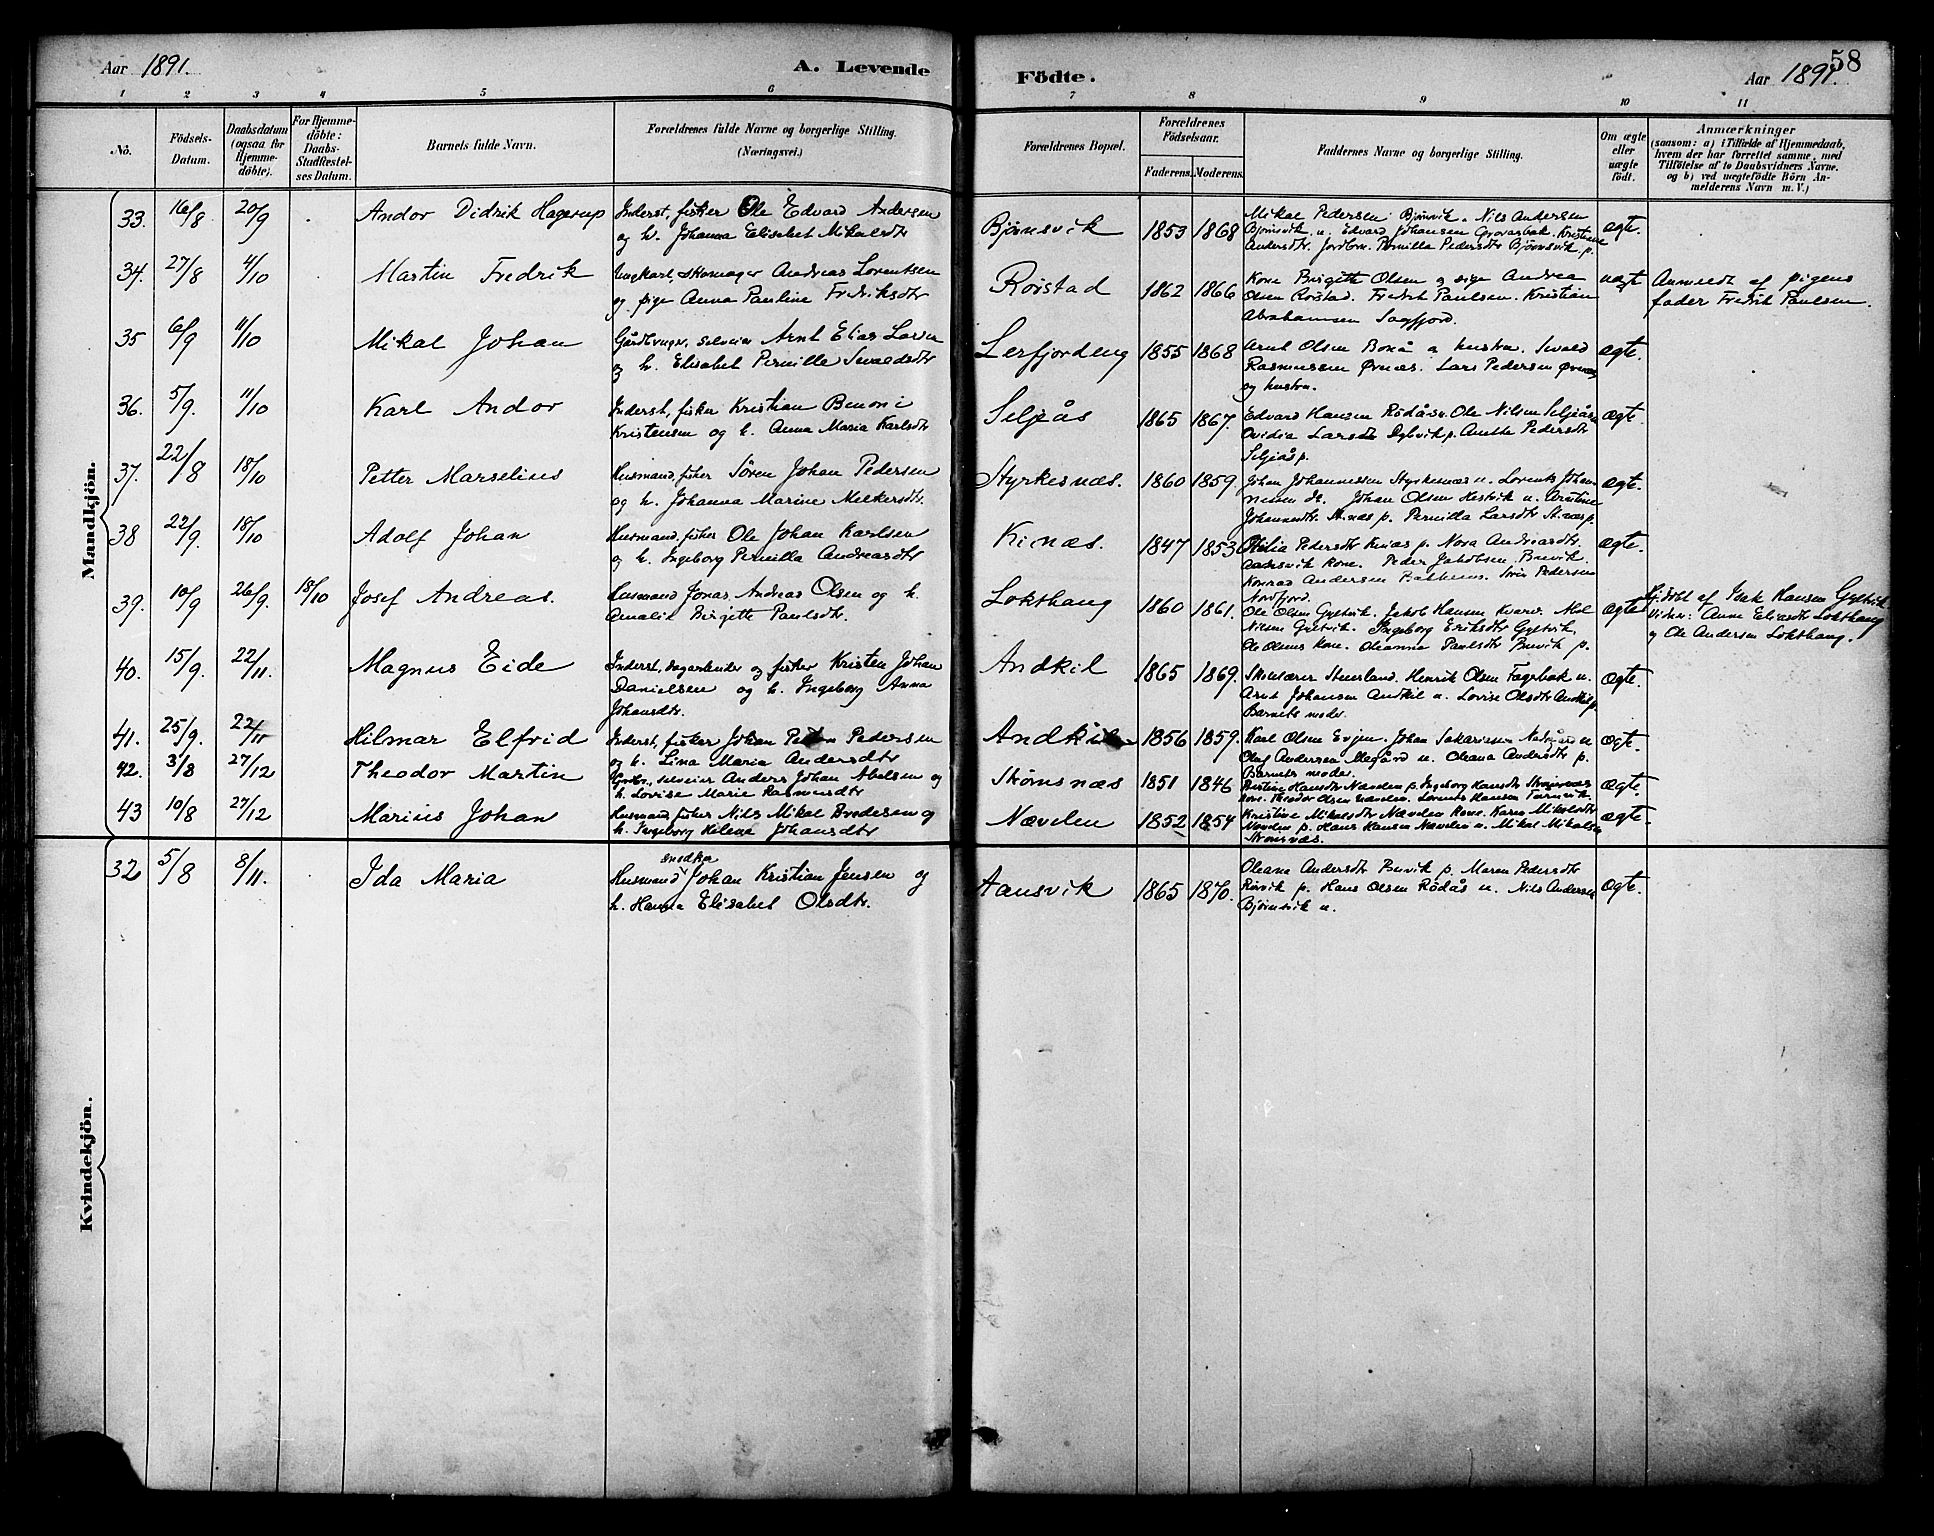 Aar 1891.
A. Levende
1 2 3 4 5 6
No.
Födsels-Datum.
Daabsdatum (ogsaa for Hjemme-döbte).
For Hjemme-döbte: Daabs-Stadfæstel-ses Datum.
Barnets fulde Navn.
Forældrenes fulde Navne og borgerlige Stilling.
(Næringsvei.)
Mandkjön.
33. 16/8 20/9 Andor Didrik Hagerup Inderst, fisker Ole Edvard Andersen
og h. Johanna Elisabet Mikalsdtr
34. 27/8 4/10 Martin Fredrik Ungkarl, skomager Andreas Lorentsen
og pige Anna Pauline Fredriksdtr
35 6/9 11/10 Mikal Johan Gårdbruger, selveier Arnt Elias Larsen
og h. Elisabet Pernille Sivaldsdtr
36. 5/9. 11/10 Karl Andor Inderst, fisker Kristian Benoni
Kristensen og h. Anna Maria Karlsdtr
37. 22/8 18/10 Petter Marselius Husmand, fisker Søren Johan Pedersen
og h. Johanna Marine Melkersdtr.
38 22/9. 18/10 Adolf Johan Husmand, fisker Ole Johan Karlsen
og h. Ingeborg Pernilla Andreasdtr
39. 10/9 26/9. 18/10 Josef Andreas. Husmand Jonas Andreas Olsen og h.
Amalia Birgitte Paulsdtr.
40. 15/9. 22/11. Magnus Eide Inderst, dagarbeider og fisker Kristen Johan
Danielsen og h. Ingeborg Anna
Johansdtr.
41. 25/9. 22/11 Hilmar Elfrid Inderst, fisker Johan Pedersen
og h. Lina Maria Andersdtr
42. 3/8 27/12 Theodor Martin Gbr., selveier Anders Johan Abelsen og
h. Lovise Marie Rasmusdtr
43 10/8 27/12 Marius Johan Husmand fisker Nils Mikal Brodersen og
h. Ingeborg Helene Johansdtr
Kvindekjön.
32 5/8 8/11. Ida Maria Husmand snedker Johan Kristian Jensen og
h. Hanna Elisabet Olsdtr.
Födte.
Aar 1891.
58
7 8 9 10 11
Forældrenes Bopæl.
Forældrenes Födselsaar.
Faderens. Moderens.
Faddernes Navne og borgerlige Stilling.
Om ægte eller uægte födt.
Anmærkninger
(saasom: a) i Tilfælde af Hjemmedaab,
hvem der har forrettet samme, med
Tilföielse af to Daabsvidners Navne.
og b) ved uægtefödte Börn An-
melderens Navn m. V.)
Bjørnsvik 1853 1868 Mikal Pedersen Bjørnsvik. Nils Andersen
Bjørnsvik u. Edvard Johansen Kristine
Andersdtr. Pernilla Pedersdtr Bjørnsvik p. ægte.
Røistad 1862 1866 Kone Birgitte Olsen og pige Andrea
Olsen Røistad. Fredrik Paulsen. Kristian
Abrahamsen Sagfjord. uægte Anmeldt af pigens
fader Fredrik Paulsen.
Lerfjordeng 1855 1868 Arnt Olsen Bonå og hustru. Sivald
Rasmussen Ørnes. Lars Pedersen Ørnes
og hustru. ægte.
Seljeås 1865 1867. Edvard Hansen Rödås u. Ole Nilsen Seljeås u.
Ovidia Larsdtr Dybvik p. Anette Pedersdtr
Seljeås p. ægte.
Styrkesnæs. 1860 1859. Johan Johannessen Styrkesnæs u. Lorents Johan-
nessen ds. Johan Olsen Hestvik u. Kristine
Johannesdtr. St.næs p. Pernilla Larsdtr St.næs p. ægte.
Kinæs. 1847 1853 Pedersdtr Kinæs p. Nora Andreasdtr.
Aansvik kone. Peder Jakobsen Buvik.
Konrad Andersen Sören Pedersen
Nordfjord. ægte.
Lokthaug 1860 1861. Ole Olsen Gyltvik. Jakob Hansen Kvarv.
Nilsen Gyltvik. Ingeborg Eriksdtr Gyltvik.
Ole Olsens kone. Oleanna Paulsdtr Buvik p. ægte Hj.döbt af Isak Hansen Gyltvik
Vidner: Anne Elisabet Lokthaug
og Ole Andersen Lokthaug.
Andkil 1865 1869. Henrik Olsen Fagerbak u.
Arnt Johansen Andkil u. Lovise Olsdtr Andkil p.
Barnets moder. ægte.
Andkil 1856 1859. Karl Olsen Evjen. Johan Sakariassen u
Olaf Andersen u. Oleana Andersdtr p.
Barnets moder. ægte.
Skönsnæs 1851 1846 Kristine Hansdtr Nævelen p. Ingeborg Hansdtr
kone. Theodor Olsen Nævelen. Lorents Hansen Tørnvik. ægte.
Nævelen 1852 1854 Kristine Mikalsdtr Nævelen kone. Karen Mikalsdtr
Nævelen p. Hans Hansen Nævelen u. Mikal Mikalsen
ægte.
Aansvik 1865 1870. Oleana Andersdtr Buvik p. Maren Pedersdtr
Rørvik p. Hans Olsen Rödås u. Nils Andersen
Bjørnsvik u. ægte.